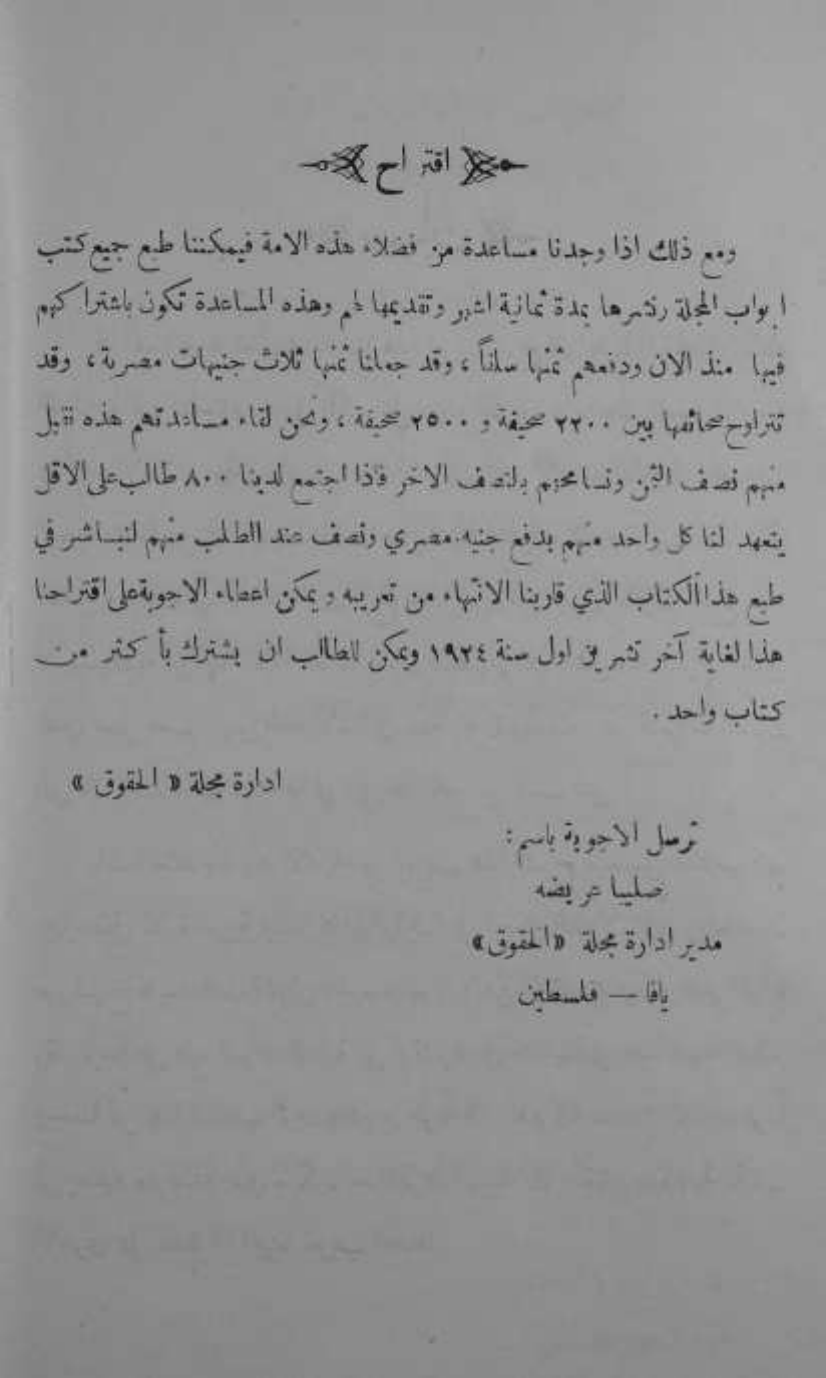 اقتراح
ومع ذلك اذا وجدنا مساعدة من فضلاء هذه الامة فيمكننا طبع جميع كتب
ابواب المجلة ونشرها بمدة ثمانية اشهر وتقديمها لهم وهذه المساعدة تكون باشتراكهم
فيها منذ الان ودفعهم ثمنها سلفاً ، وقد جعلنا ثمنها ثلاث جنيهات مصرية ، وقد
تتراوح صحائفها بين ٢٢٠٠ صحيفة و ٢٥٠٠ صحيفة ، ونحن لقاء مساعدتهم هذه نقبل
منهم نصف الثمن ونسامحهم بالنصف الاخر فاذا اجتمع لدينا ٨٠٠ طالب على الاقل
يتعهد لنا كل واحد منهم بدفع جنيه مصري ونصف عند الطلب منهم لنباشر في
طبع هذا الكتاب الذي قاربنا الانتهاء من تعريبه ويمكن اعطاء الاجوبة على اقتراحنا
هذا لغاية آخر تشرين اول سنة ١٩٢٤ ويمكن للطالب ان يشترك بأكثر من
كتاب واحد .
ادارة مجلة « الحقوق »
ترسل الاجوبة باسم :
صليبا عريضه
مدير ادارة مجلة «الحقوق»
يافا — فلسطين